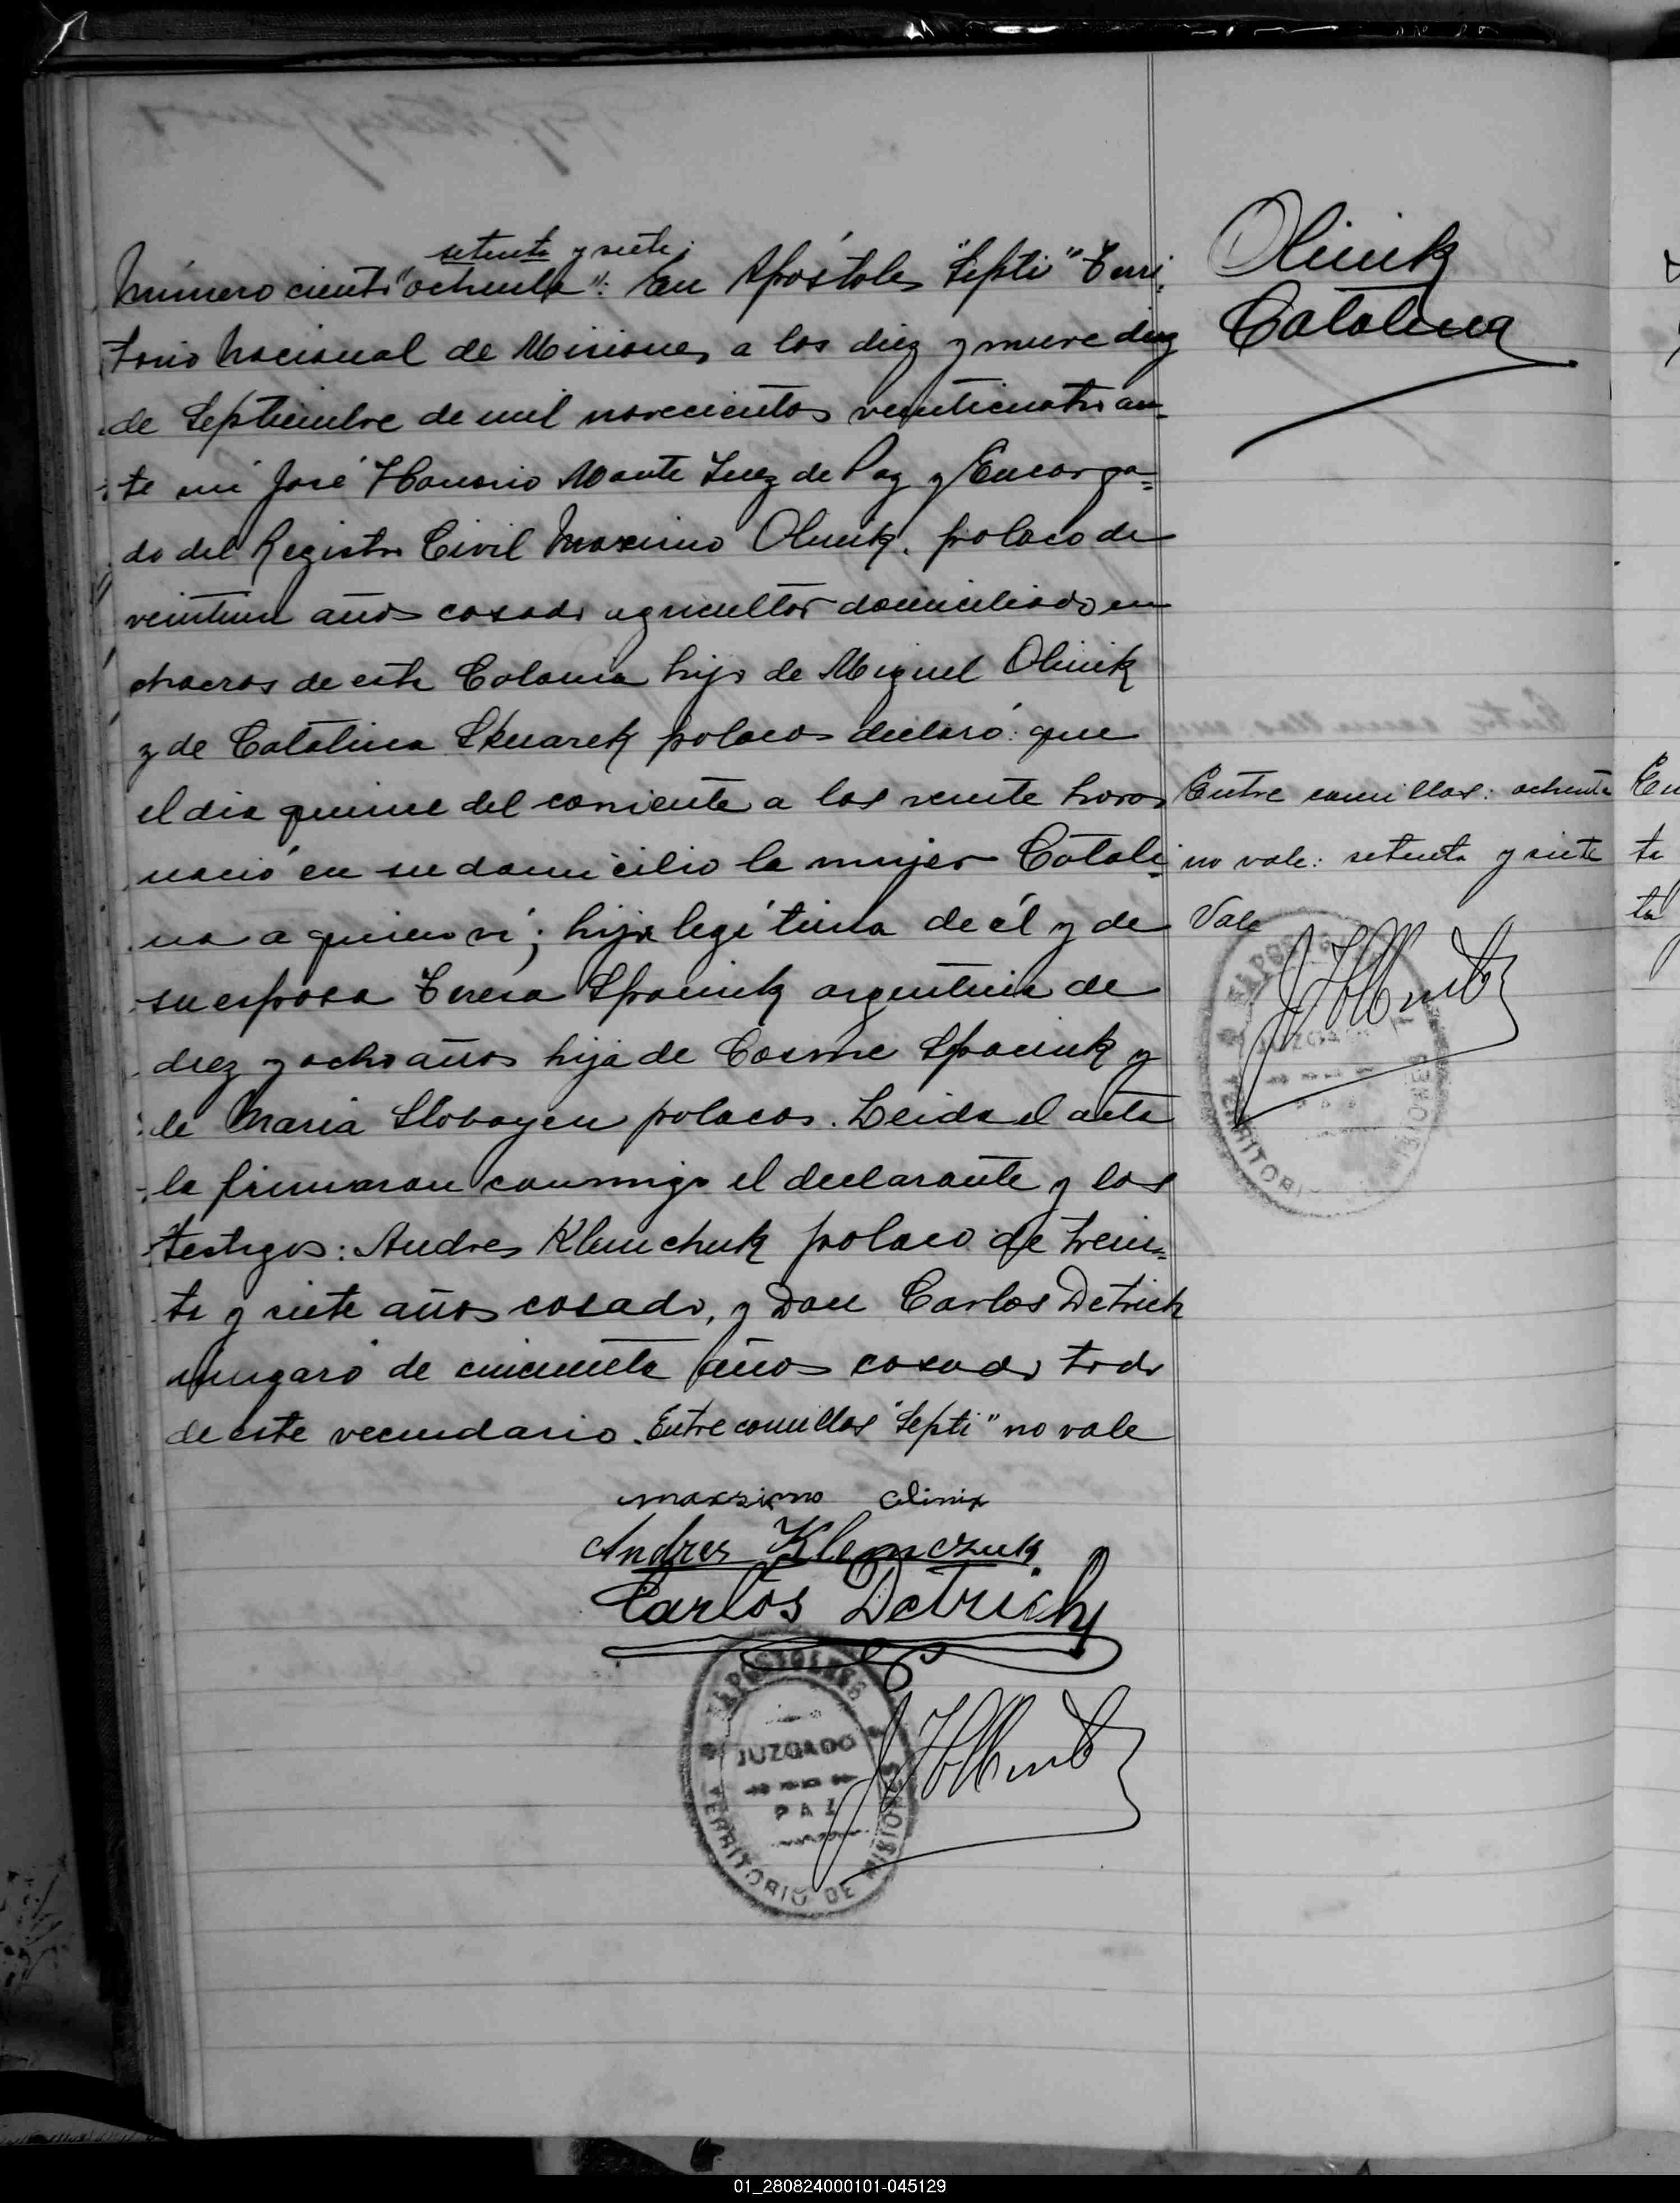 Olinik
Catalina
setenta y siete;
Número ciento "ochenta": En Apóstoles "Septi" Terri-
torio Nacional de Misiones a los diez y nueve dias
de Septiembre de mil novecientos veinticuatro an-
te mi José Honorio Monte Juez de Paz y Encarga=
do del Registro Civil Maximo Olinik, polaco de
veintiun años casado agricultor domiciliado en
chacras de esta Colonia hijo de Miguel Olinik
y de Catalina Skuarek polacos declaró: que
el dia quince del corriente a las veinte horas
nació en su domicilio la mujer Catali=
na a quien vi; hija legitima de él y de
su esposa Teresa Spaciuk argentina de
diez y ocho años hija de Cosme Spaciuk y
de Maria Slobayen polacos. Leida el acta
la firmaron conmigo el declarante y los
testigos: Andres Klemchuk polaco de trein=
ta y siete años casado, y Don Carlos Detrich
úngaro de cincuenta años casado todo
de este vecindario. Entre comillas "Septi" no vale
Entre comillas: ochenta
no vale: setenta y siete
Vale
maxsimo Olinix
Andres Klemczuk
Carlos Detrich
APOSTOLES
JUZGADO
DE
PAZ
TERRITORIO DE MISIONES
01_280824000101-045129